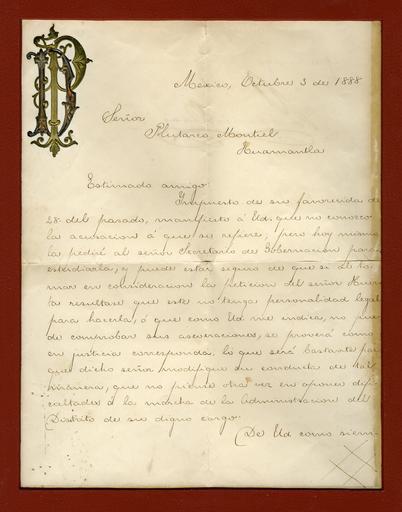 PD
México, Octubre 3 de 1888
Señor
Plutarco Montiel
Huamantla
Estimado amigo:
Impuesto de su favorecida de
28 del pasado, manifiesto á Ud. que no conozco
la acusacion á que se refiere; pero hoy mismo
la pediré al señor Secretario de Gobernacion para
estudiarla, y puede estar seguro de que si al to-
mar en consideracion la peticion del señor
ta resultase que este no tenga personalidad legal
para hacerla, ó que como Ud. me indica, no pue-
de comprobar sus aseveraciones, se proverá como
en justicia corresponda, lo que será bastante para
que dicho señor modifique su conducta de tal
manera, que no piense otra vez en oponer difi-
cultades á la marcha de la Administracion del
Distrito de su digno cargo.
De Ud. como siem-